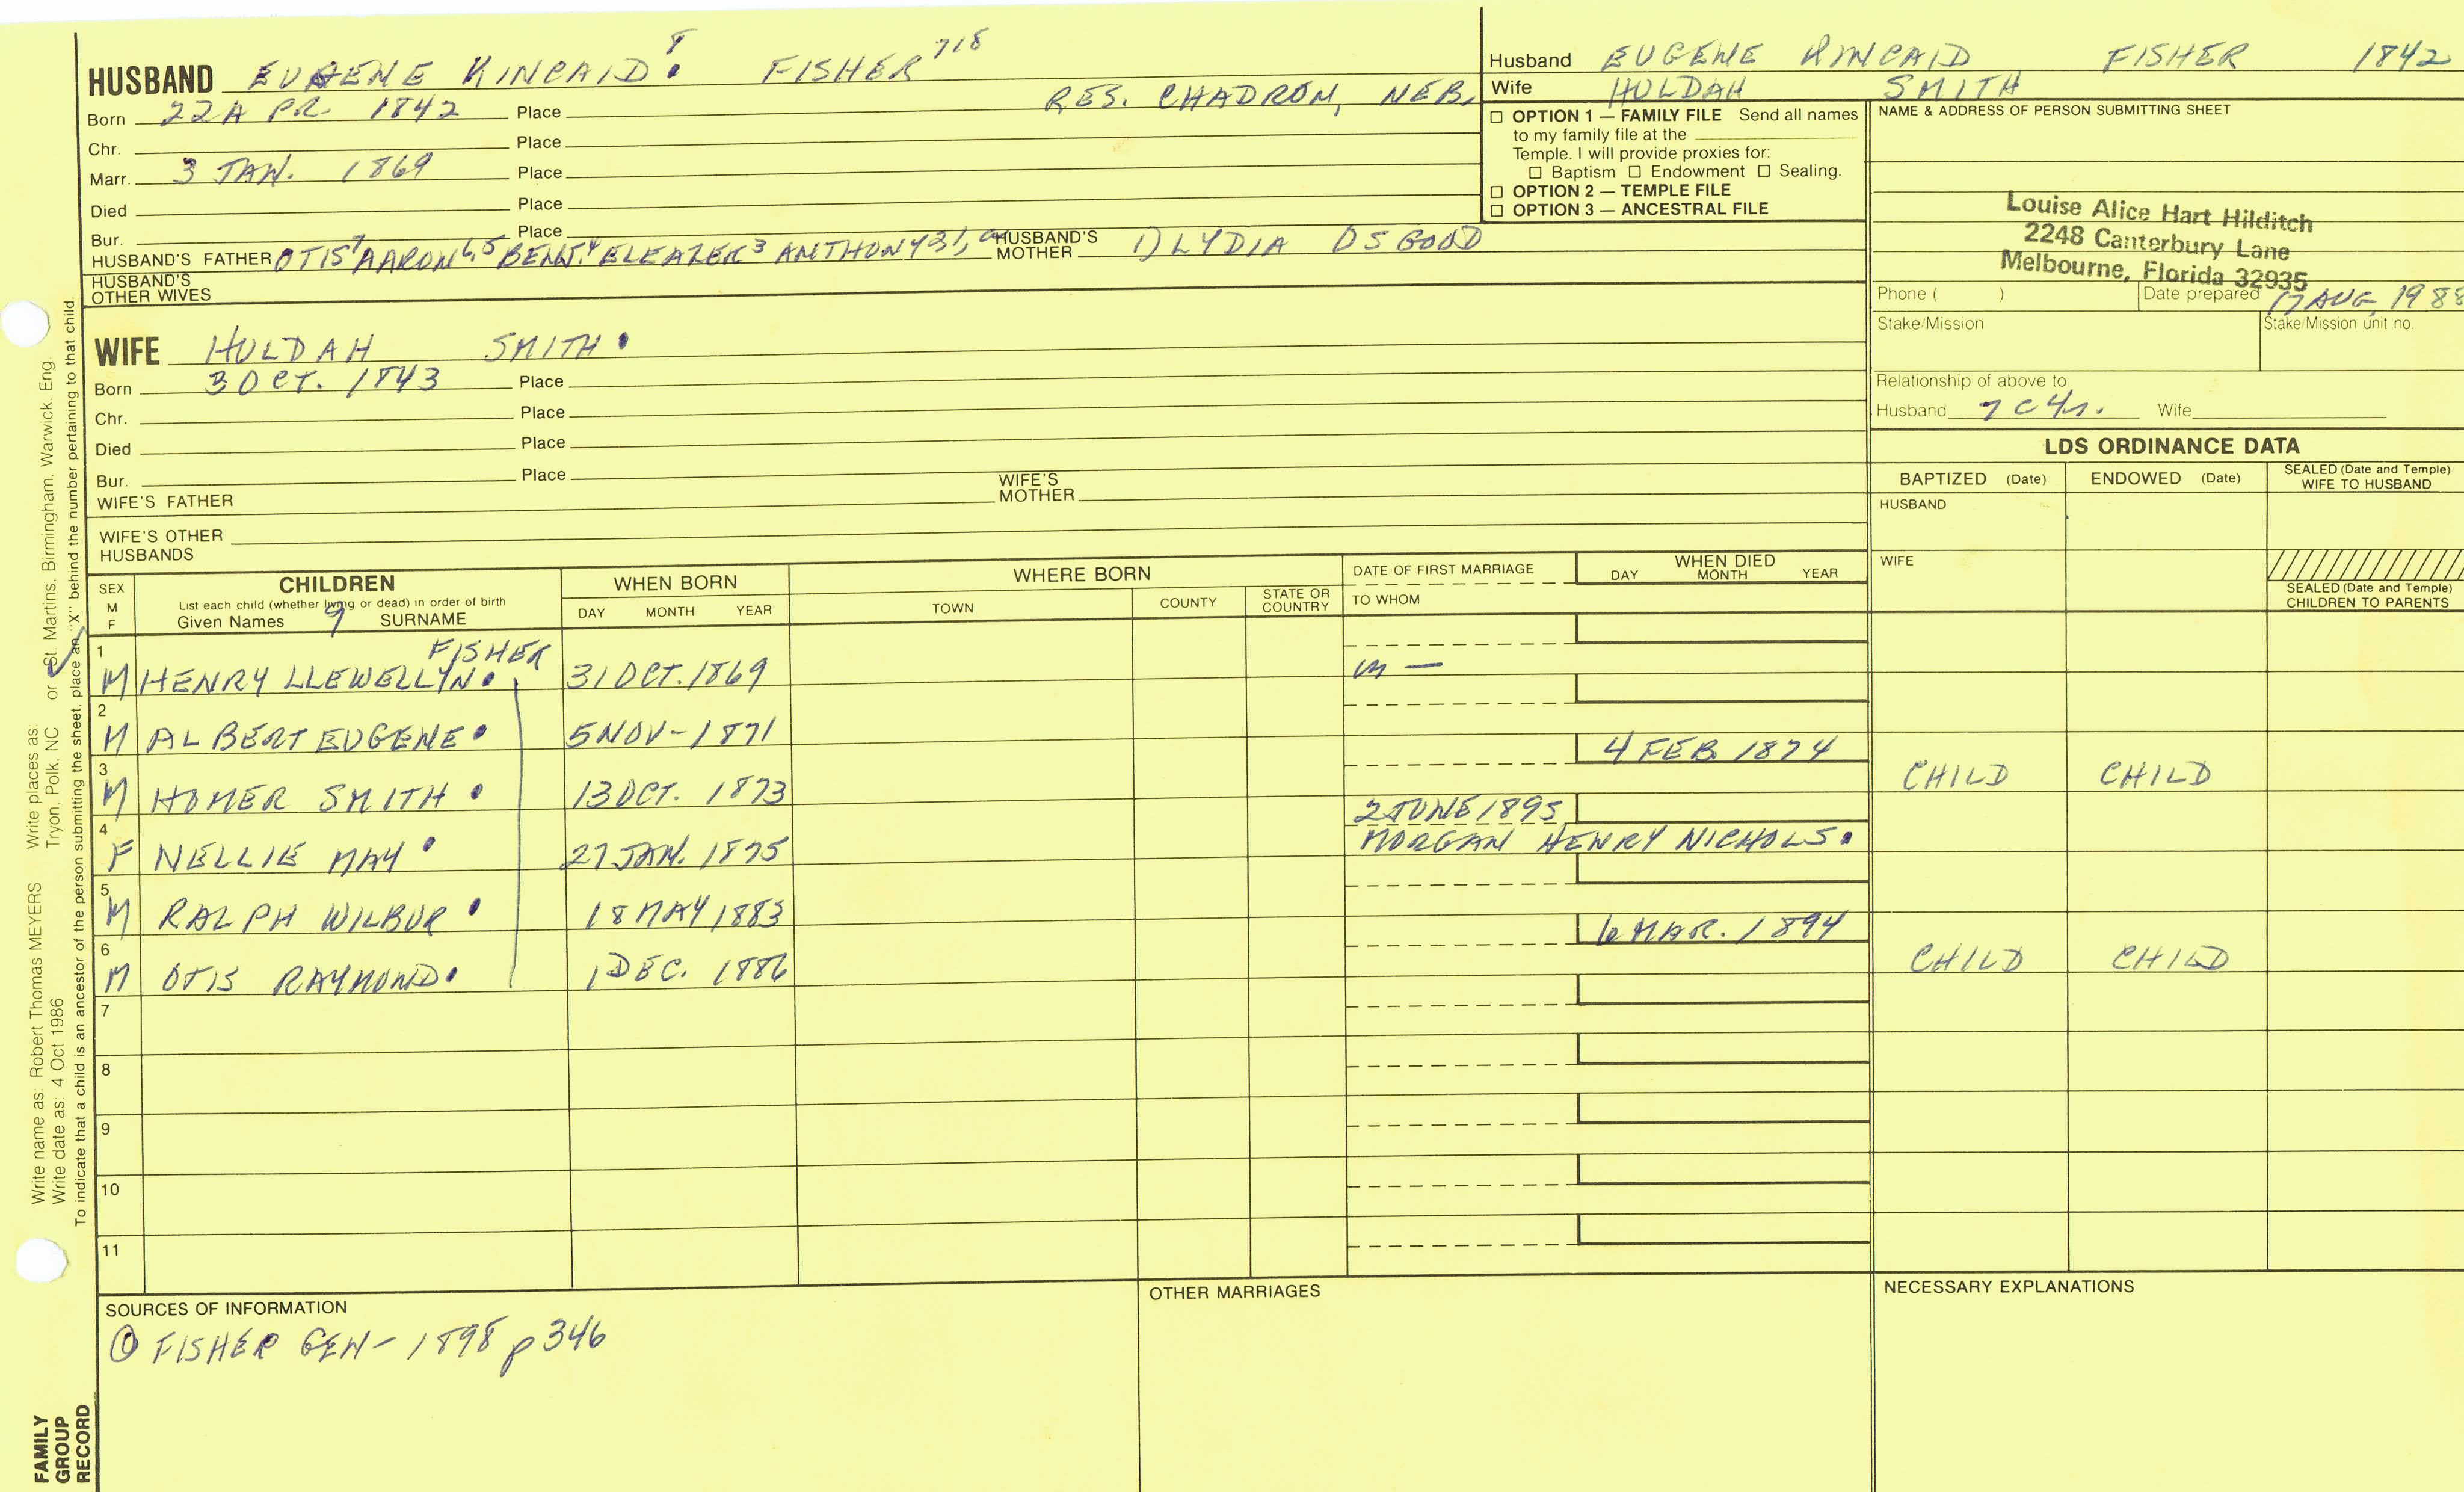 HUSBAND EUGENE KINCAID 8 FISHER 718
RES. CHADRON, NEB.
Born 22 APR. 1842 Place
Chr. Place
Marr. 3 JAN. 1869 Place
Died Place
Bur. Place
HUSBAND'S FATHER OTIS7 AARON6,5 BENJ.4 ELEAZER3 ANTHONY HUSBAND'S MOTHER 1) LYDIA OSGOOD
HUSBAND'S OTHER WIVES
WIFE HULDAH SMITH
Born 3 OCT. 1843 Place
Chr. Place
Died Place
Bur. Place
WIFE'S FATHER WIFE'S MOTHER
WIFE'S OTHER HUSBANDS
Husband EUGENE KINCAID FISHER 1842
Wife HULDAH SMITH
☐ OPTION 1 — FAMILY FILE Send all names
to my family file at the
Temple. I will provide proxies for:
☐ Baptism ☐ Endowment ☐ Sealing.
☐ OPTION 2 — TEMPLE FILE
☐ OPTION 3 — ANCESTRAL FILE
NAME & ADDRESS OF PERSON SUBMITTING SHEET
Louise Alice Hart Hilditch
2248 Canterbury Lane
Melbourne, Florida 32935
Phone ( ) Date prepared 17 AUG, 1988
Stake/Mission Stake/Mission unit no.
Relationship of above to:
Husband 7 C 4r. Wife
LDS ORDINANCE DATA
BAPTIZED (Date) ENDOWED (Date) SEALED (Date and Temple) WIFE TO HUSBAND
HUSBAND
WIFE
SEALED (Date and Temple) CHILDREN TO PARENTS
SEX M F
CHILDREN
List each child (whether living or dead) in order of birth
Given Names 9 SURNAME
WHEN BORN
DAY MONTH YEAR
WHERE BORN
TOWN COUNTY STATE OR COUNTRY
DATE OF FIRST MARRIAGE
TO WHOM
WHEN DIED
DAY MONTH YEAR
1 FISHER
M HENRY LLEWELLYN. 31 OCT. 1869 m —
2
M ALBERT EUGENE 5 NOV - 1871
3 4 FEB. 1874
M HOMER SMITH 13 OCT. 1873 CHILD CHILD
4 2 JUNE 1895
F NELLIE MAY 27 JAN. 1875 MORGAN HENRY NICHOLS.
5
M RALPH WILBUR 18 MAY 1883
6 6 MAR. 1894
M OTIS RAYMOND 1 DEC. 1886 CHILD CHILD
7
8
9
10
11
SOURCES OF INFORMATION
① FISHER GEN - 1898 p 346
OTHER MARRIAGES
NECESSARY EXPLANATIONS
Write name as: Robert Thomas MEYERS Write places as: Tryon, Polk, NC or St. Martins, Birmingham, Warwick, Eng
Write date as: 4 Oct 1986
To indicate that a child is an ancestor of the person submitting the sheet, place an "X" behind the number pertaining to that child.
FAMILY
GROUP
RECORD